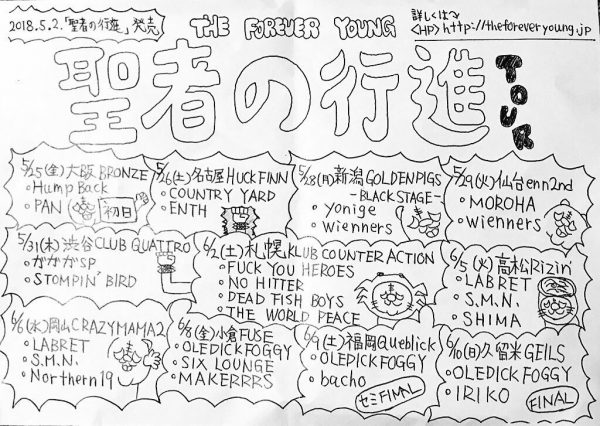 2018.5.2.「聖者の行進」発売
THE FOREVER YOUNG
詳しくは〜
<HP> http://theforeveryoung.jp
聖者の行進
TOUR
5/25(金)大阪BRONZE
・Hump Back
・PAN
初日
5/26(土)名古屋HUCK FINN
・COUNTRY YARD
・ENTH
5/28(月)新潟GOLDENPIGS
-BLACK STAGE-
・yonige
・wienners
5/29(火)仙台enn2nd
・MOROHA
・wienners
5/31(木)渋谷CLUB QUATTRO
・ガガガSP
・STOMPIN' BIRD
6/2(土)札幌KLUB COUNTER ACTION
・FUCK YOU HEROES
・NO HITTER
・DEAD FISH BOYS
・THE WORLD PEACE
6/5(火)高松Rizin'
・LABRET
・S.M.N.
・SHIMA
6/6(水)岡山CRAZYMAMA2
・LABRET
・S.M.N.
・Northern19
6/8(金)小倉FUSE
・OLEDICKFOGGY
・SIX LOUNGE
・MAKERRRS
6/9(土)福岡Queblick
・OLEDICKFOGGY
・bacho
セミFINAL
6/10(日)久留米GEILS
・OLEDICKFOGGY
・IRIKO
FINAL